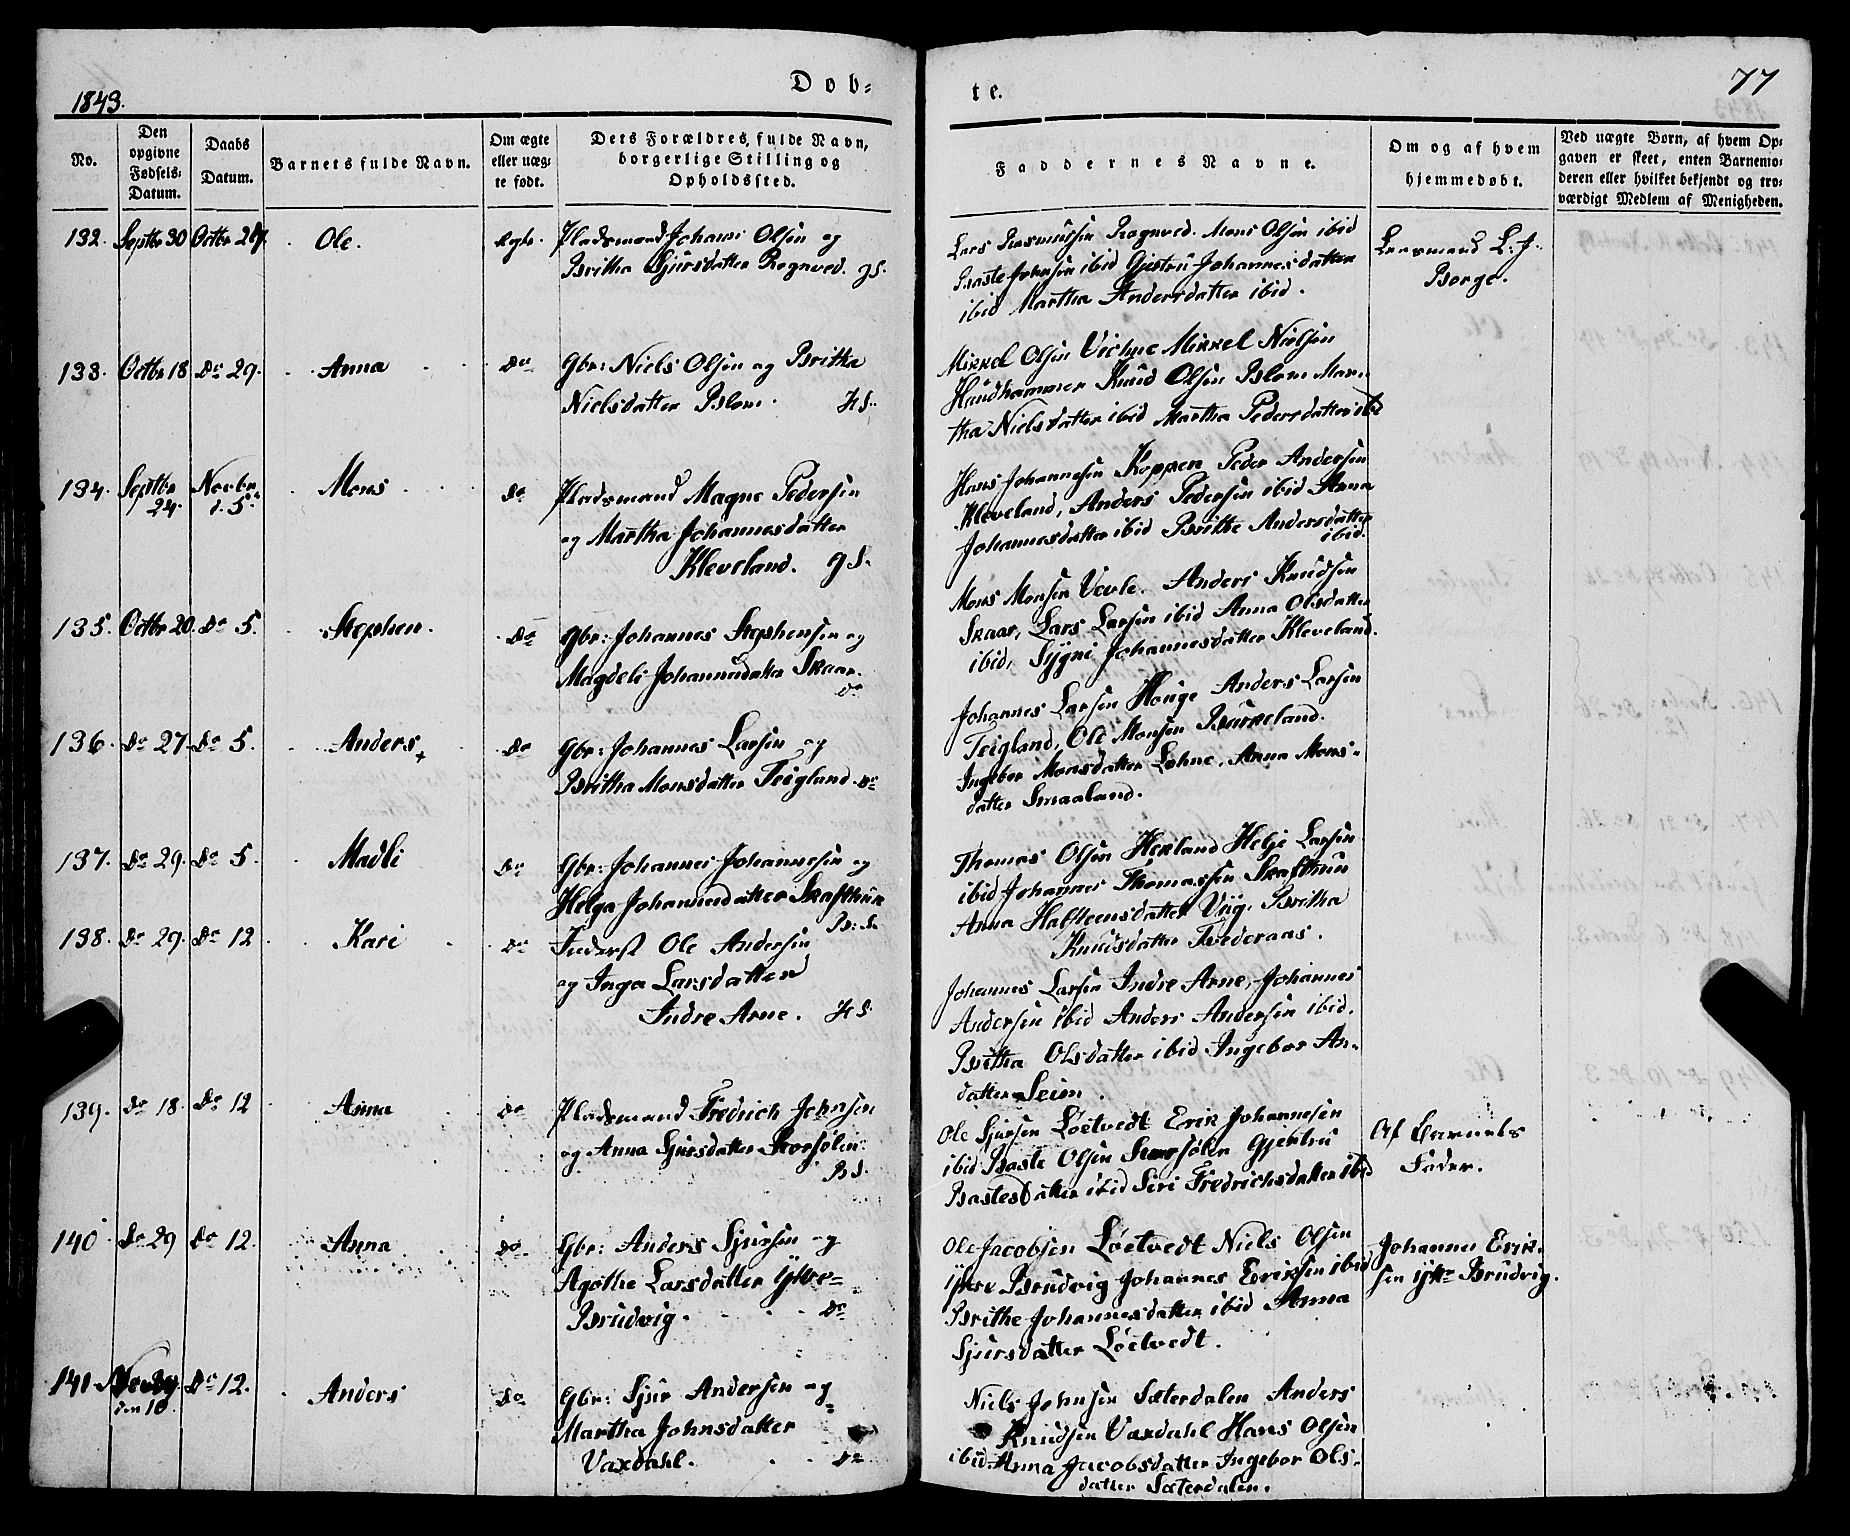 Døb=
te.
77
1843.
No.
Den
opgivne
Fødsels-
Datum.
Daabs
Datum.
Barnets fulde Navn.
Om ægte
eller uæg-
te født.
Dets Forældres, fulde Navn,
borgerlige Stilling og
Opholdssted.
Faddernes Navne.
Om og af hvem
hjemmedøbt.
Ved uægte Børn, af hvem Op-
gaven er skeet, enten Barnemo-
deren eller hvilket bekjendt og tro-
værdigt Medlem af Menigheden.
132. Septbr 30 Octbr 29. Ole. Ægte. Pladsmand Johans Olsen og
Britha Sjursdatter Rognved. gS.
Lars Rasmussen Rognved. Mons Olsen ibid
Baste Johnsen ibid Gjertru Johannesdatter
ibid Martha Andersdatter ibid.
Lensmand L: J:
Borge.
133. Octbr 18 Do 29. Anna Do Gbr: Niels Olsen og Britha
Nielsdatter Blom. HS.
Mikkel Olsen Vichne Mikkel Nielsen
Hundhammer Knud Olsen Blom Mar-
tha Nielsdatter ibid Martha Pedersdatter ibid
134. Septbr Novbr Mons Do Pladsmand Magne Pedersen
24. d. 5.
og Martha Johannesdatter
Kleveland. gS.
Hans Johannesen Koppen Peder Andersen
Kleveland, Anders Pedersen ibid Anna
Johannesdatter ibid Brithe Andersdatter
ibid.
135. Octbr 20. Do 5. Stephen. Do Gbr: Johannes Stephensen og
Magdeli Johannesdatter Skaar.
Do
Mons Monsen Vevle. Anders Knudsen
Skaar, Lars Larsen ibid Anna Olsdatter
ibid, Sygni Johannesdatter Kleveland.
136. Do 27. Do 5. Anders + Do Gbr: Johannes Larsen og
Britha Monsdatter Teigland. Do
Johannes Larsen Houge Anders Larsen
Teigland, Ole Monsen Burkeland.
Ingebor Monsdatter Lohne, Anna Mons-
datter Smaaland.
137. Do 29. Do 5. Madli Do Gbr: Johannes Johannesen og
Helga Johannesdatter Skafthun
B: S.
Thomas Olsen Herland Helje Larsen
ibid Johannes Thomassen Skafthun
Anna Halsteensdatter Viig, Britha
Knudsdatter Tvederaas.
138. Do 29. Do 12 Kari Do Inderst Ole Andersen
og Inga Larsdatter
Indre Arne. HS
Johannes Larsen Indre Arne, Johannes
Andersen ibid Anders Andersen ibid.
Britha Olsdatter ibid Ingebor An-
datter Seim.
139. Do 18. Do 12 Anna Do Pladsmand Fredrich Johnsen
og Anna Sjursdatter
BS.
Ole Sjursen Løetvedt Erik Johannesen
ibid Baste Olsen Gjertru
Bastesdatter ibid Siri Fredrichsdatter ibid
Af Barnets
Fader.
140 Do 29 Do 12. Anna Do Gbr: Anders Sjursen og
Agathe Larsdatter Ytre-
Brudvig. Do
Ole Jacobsen Løetvedt Niels Olsen
Ytre Brudvig Johannes Eriksen ibid
Brithe Johannesdatter ibid Anna
Sjursdatter Løetvedt.
Johannes Erik-
sen Ytre Brudvig.
141 Do 12. Anders Do Gbr: Sjur Andersen og
den 10
Martha Johnsdatter
Vaxdahl. Do
Niels Johnsen Sæterdalen Anders
Knudsen Vaxdahl Hans Olsen
ibid Anna Jacobsdatter Ingebor Ols-
datter Sæterdalen.